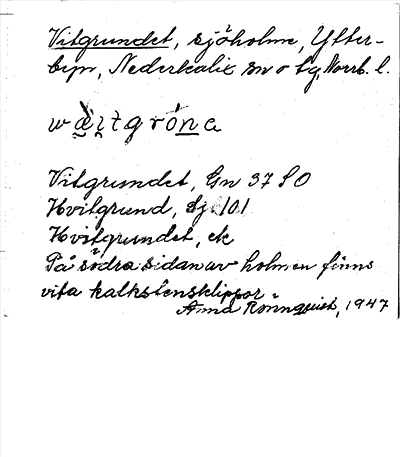 Vitgrundet, sjöholme, Ytter-
byn, Nederkalix sn o tg, Norrb. l.
Vitgrundet, Gn 37 SO
Hvitgrund, Sj. 101
Hvitgrundet, ek
På södra sidan av holmen finns
vita kalkstensklippor.
Anna Rönnquist, 1947